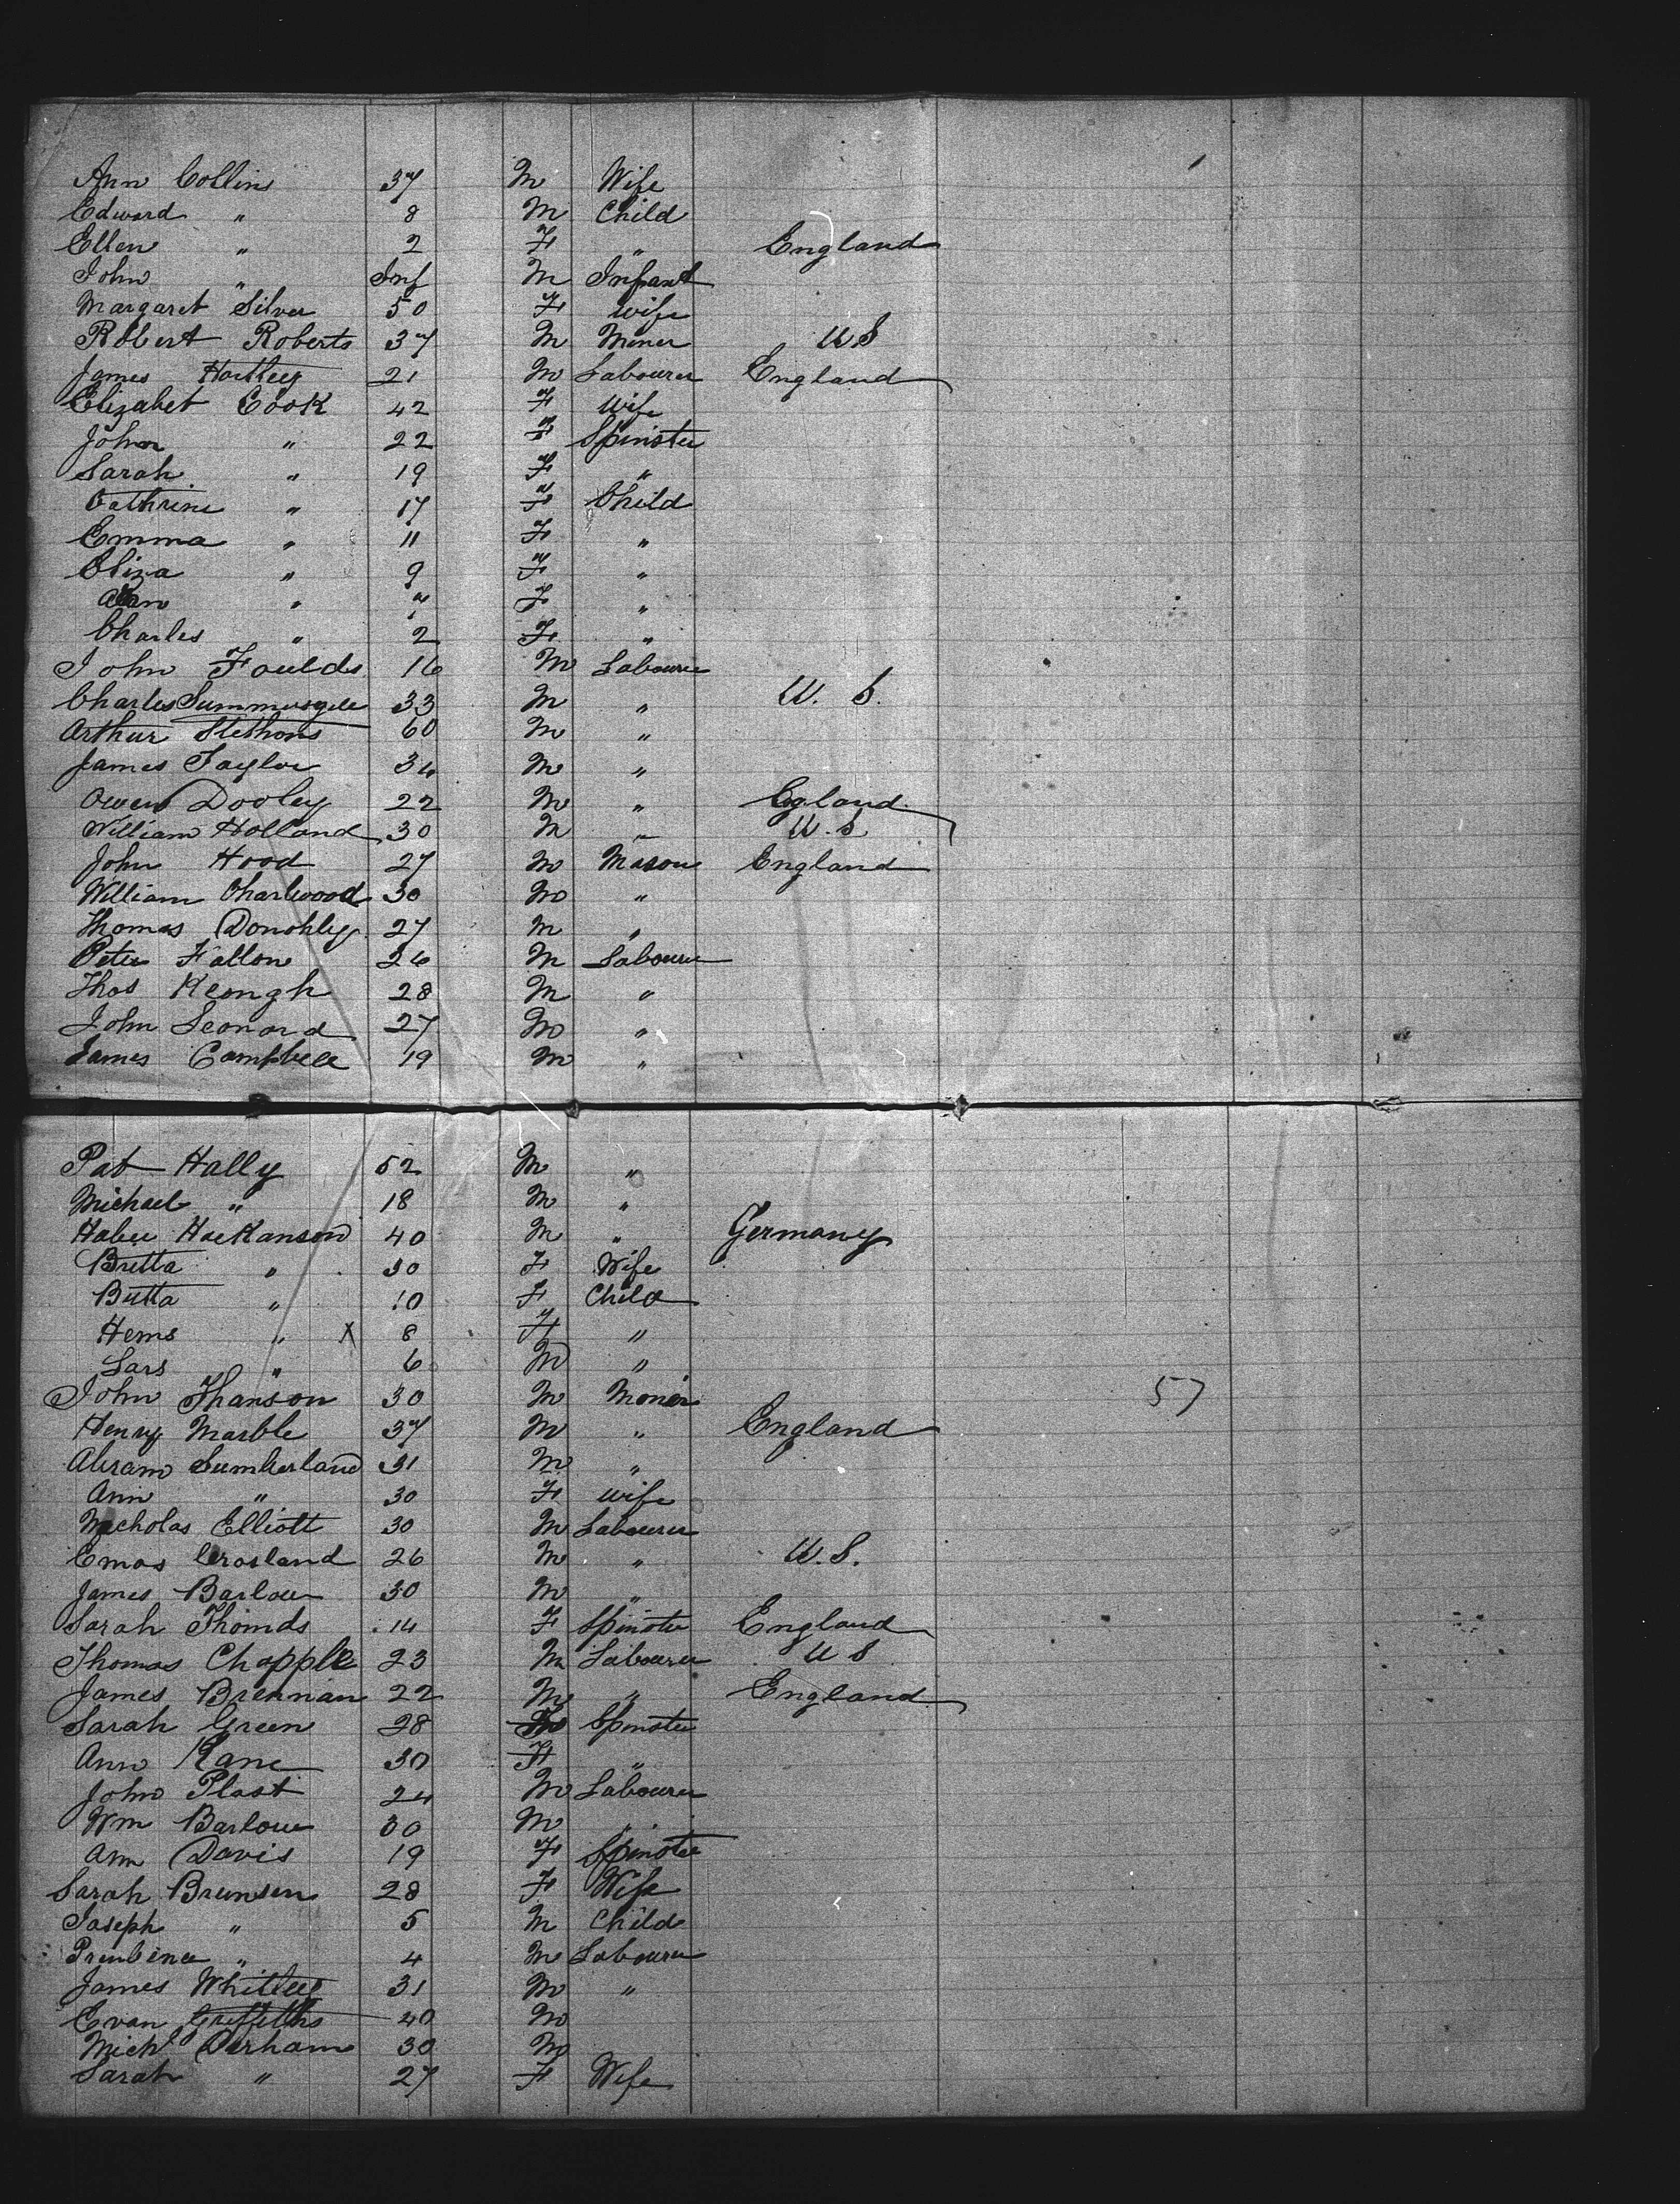 Ann Collins 37 M Wife
Edward " 8 M Child
Ellen " 2 F " England
John " Inf M Infant
Margaret Silver 50 F Wife
Robert Roberts 37 M Miner U S
James Hartley 21 M Labourer England
Elizabet Cook 42 F Wife
John " 22 F Spinster
Sarah " 19 F "
Cathrine " 17 F Child
Emma " 11 F "
Eliza " 9 F "
Ann " " F "
Charles " 2 F "
John Foulds 16 M Labourer
Charles Summersgile 33 M " U. S.
Arthur 60 M "
James Taylor 34 M "
Owen Dooley 22 M " Egland
William Holland 30 M " U. S.
John Hood 27 M Mason England
William Charlwood 30 M "
Thomas Donohley 27 M "
Peter Fallon 26 M Labourer
Thos Keongh 28 M "
John Leonard 27 M "
James Campbell 19 M "
Pat Hally 52 M "
Michael " 18 M "
Hackanson 40 M " Germany
Britta " 30 F Wife
Butta " 10 F Child
Hems " X 8 F "
Lars " 6 M "
John Thanson 30 M Moner 57
Henry Marble 37 M " England
Abram Sumberland 31 M "
Ann " 30 F wife
Nicholas Elliott 30 M Labourer
Emos Crosland 26 M " U. S.
James Barlow 30 M "
Sarah Thomds 14 F Spinster England
Thomas Chapple 23 M Labourer U S
James Brennan 22 M " England
Sarah Green 28 Spinster
Ann Kane 30 F "
John Plast 24 M Labourer
Wm Barlow 30 M "
Ann Davis 19 F Spinster
Sarah Brunsen 28 F Wife
Joseph " 5 M Child
" 4 M Labourer
James Whitley 31 M "
Evan Griffiths 40 M
Mich Derham 30 M
Sarah " 27 F Wife